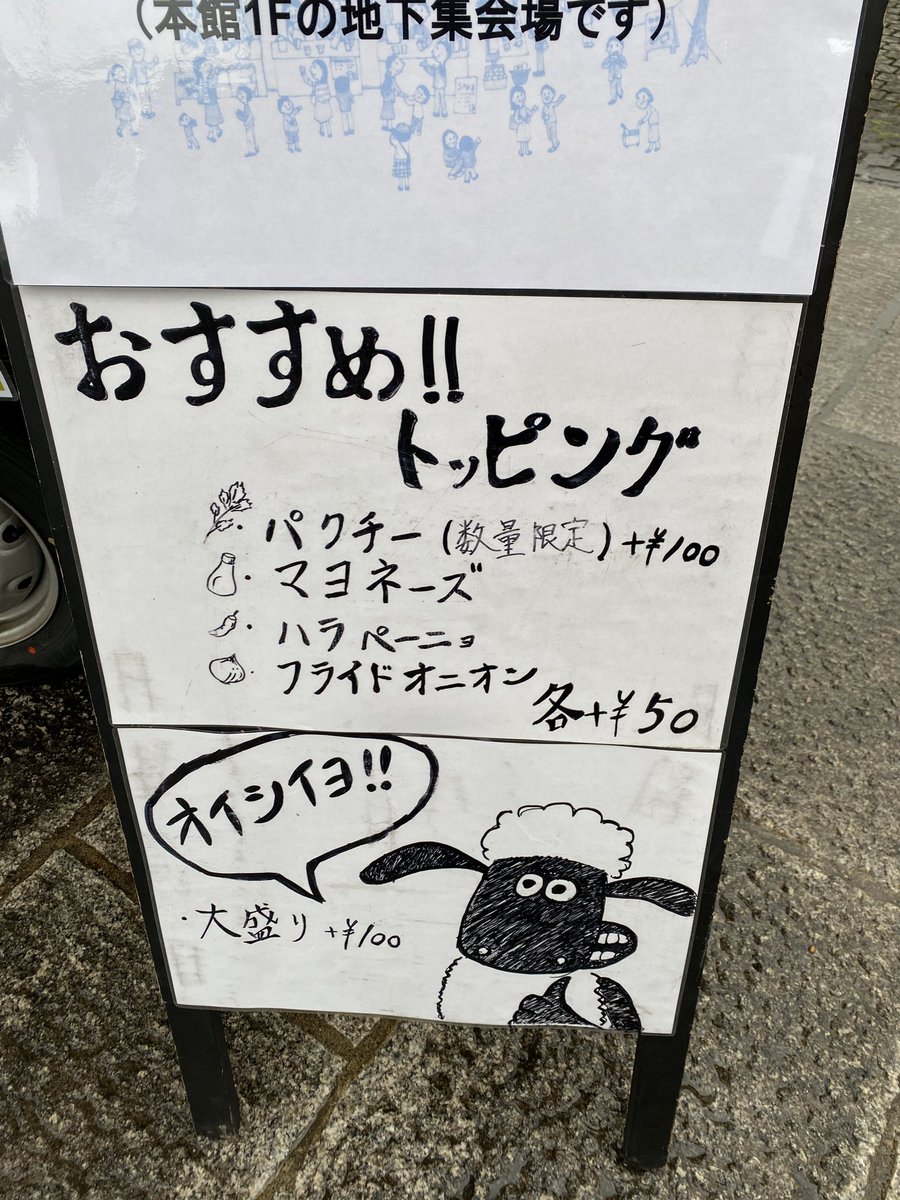 （本館1Fの地下集会場です）
おすすめ!!
トッピング
・パクチー(数量限定)+¥100
・マヨネーズ
・ハラペーニョ
・フライドオニオン
各+¥50
オイシイヨ!!
・大盛り+¥100